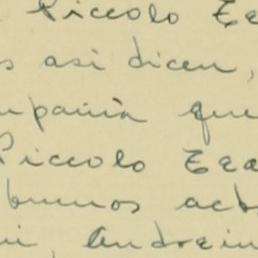 Piccolo Tea
s asi dicen,
mpañia que
Piccolo Tea
buenos act
ni, Andrein